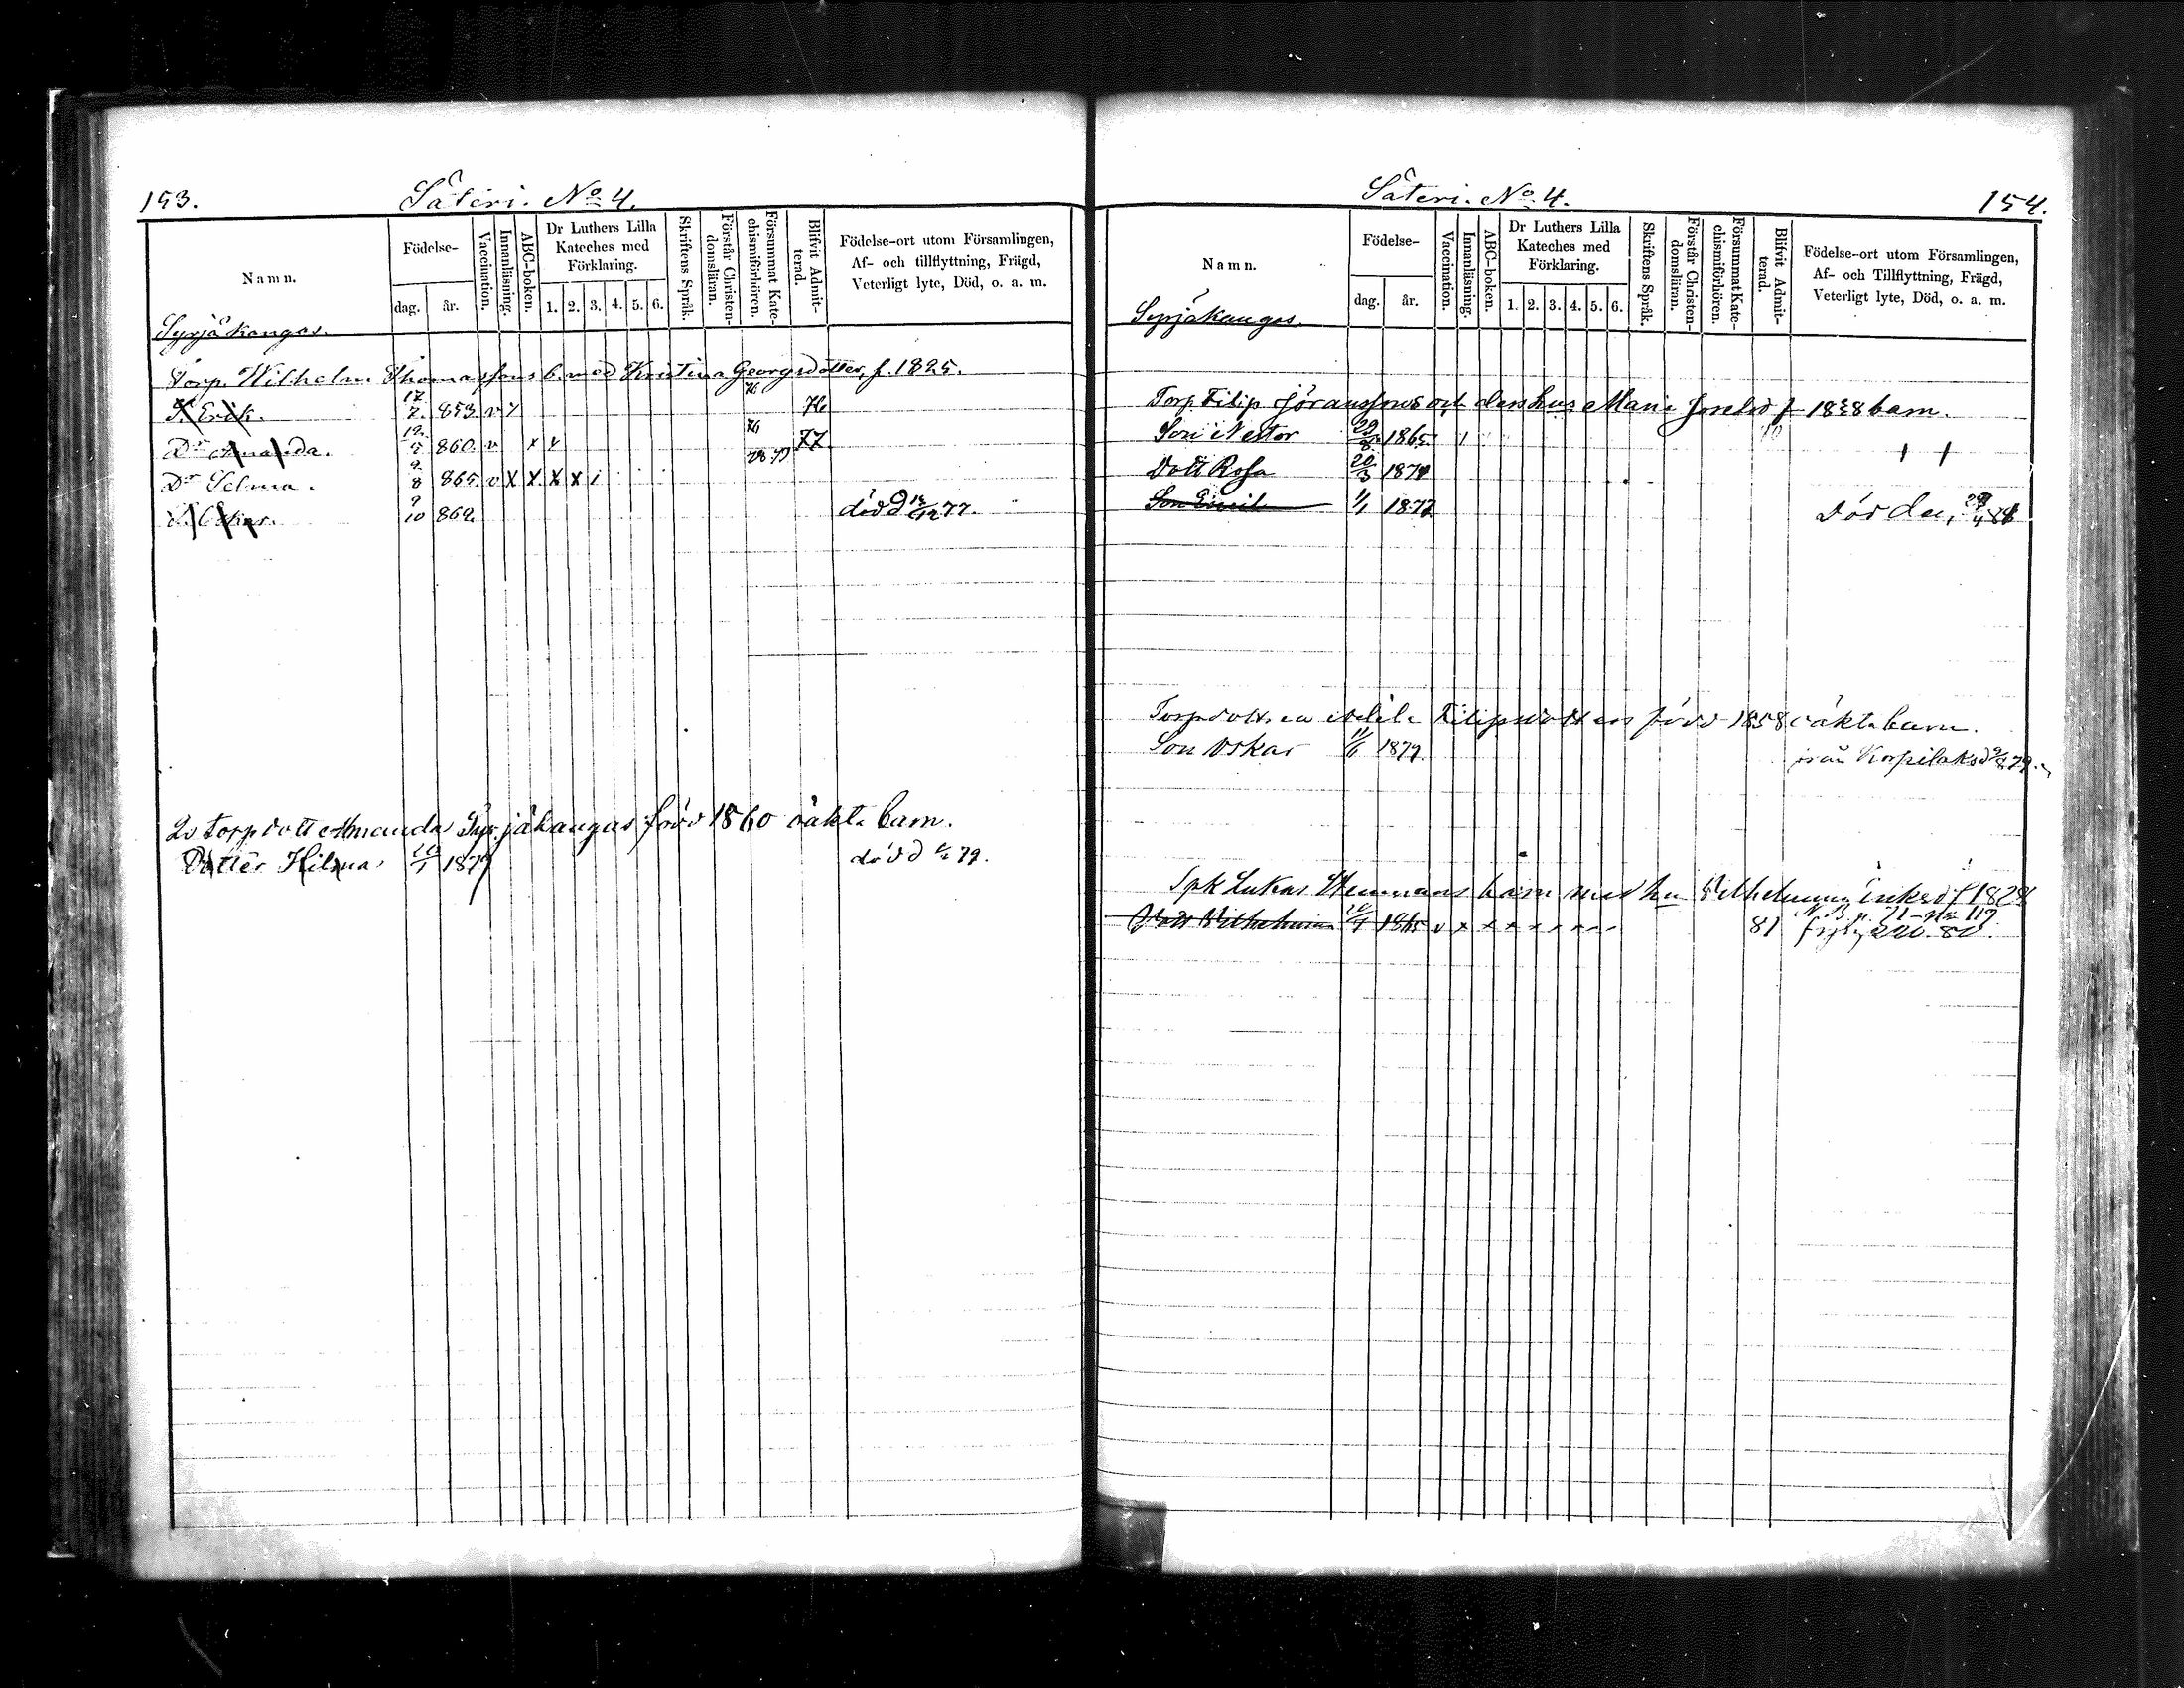 153.
Säteri. No 4.
Namn.
Födelse-
dag. år.
Vaccination.
Innanläsning.
ABC-boken.
Dr Luthers Lilla
Kateches med
Förklaring.
1. 2. 3. 4. 5. 6.
Skriftens Språk.
Förstår Christen-
domsläran.
Försummat Kate-
chismiförhören.
Blifvit Admit-
terad.
Födelse-ort utom Församlingen,
Af- och tillflyttning, Frägd,
Veterligt lyte, Död, o. a. m.
Syrjäkangas.
Torp. Wilhelm Thomassons b. med Kristina Georgsdotter, f. 1825.
S. Erik. 17/2 853 v 76 76
Dr Amanda. 12/5 860 v x x 76 77
Dr Selma. 9/8 865 v x x x x 78 79
S. Oskar. 9/10 869. död d 12 77.
Torpdott Amanda Syrjäkangas född 1860 oäkta barn.
Dotter Hilma 1879 död d 79.
Säteri. No 4.
154.
Namn.
Födelse-
dag. år.
Vaccination.
Innanläsning.
ABC-boken.
Dr Luthers Lilla
Kateches med
Förklaring.
1. 2. 3. 4. 5. 6.
Skriftens Språk.
Förstår Christen-
domsläran.
Försummat Kate-
chismiförhören.
Blifvit Admit-
terad.
Födelse-ort utom Församlingen,
Af- och Tillflyttning, Frägd,
Veterligt lyte, Död, o. a. m.
Syrjäkangas.
Torp. Filip Göranssons och dess hus Maria f 1838 barn.
Son Nestor 29/8 1865
Dott Rosa 20/3 1870
Son Emil 1/1 1877 död den
Torpdott. Filipsdotters född 1858 oäkta barn.
Son Oskar 11/6 1879 från Korpilaks 79.
Spk Lukas barn med hu f 1828
Dott Vilhelmina 1865 v x x x x 81 N.B. p. 71